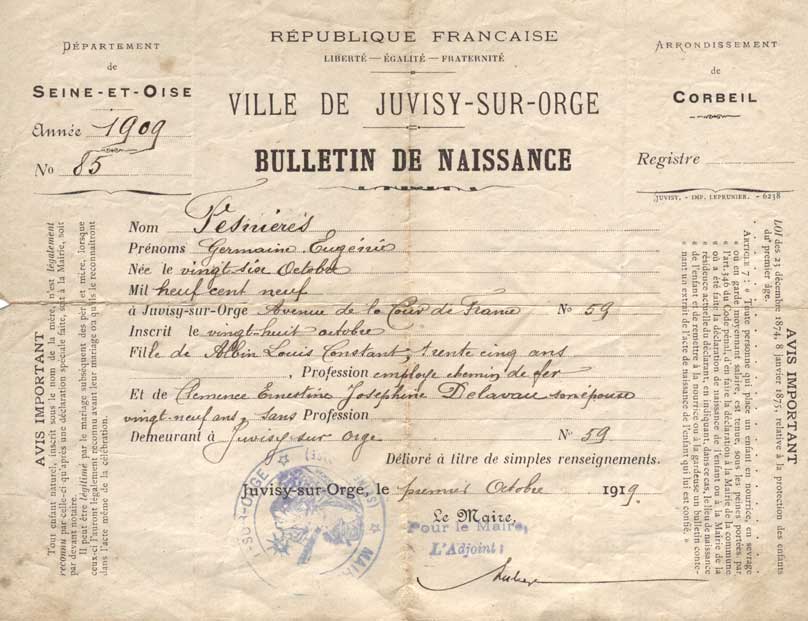 DÉPARTEMENT
de
SEINE-ET-OISE
Année 1909
No 85
RÉPUBLIQUE FRANCAISE
LIBERTÉ — ÉGALITÉ — FRATERNITÉ
VILLE DE JUVISY-SUR-ORGE
BULLETIN DE NAISSANCE
ARRONDISSEMENT
de
CORBEIL
Registre
JUVISY. - IMP. LEPRUNIER. - 6238
Nom Pesnierès
Prénoms Germaine Eugénie
Née le vingt-six Octobre
Mil neuf cent neuf
à Juvisy-sur-Orge Avenue de la Cour de France No 59
Inscrit le vingt-huit octobre
Fille de Albin Louis Constant, trente cinq ans
, Profession employe chemin de fer
Et de Clemence Ernestine Josephine Delavau son épouse
vingt-neuf ans, sans Profession
Demeurant à Juvisy-sur Orge No 59
Délivré à titre de simples renseignements.
Juvisy-sur-Orge, le premier Octobre 1919.
Le Maire,
Pour le Maire,
L'Adjoint:
AVIS IMPORTANT
Tout enfant naturel, inscrit sous le nom de la mère, n'est légalement
reconnu par celle-ci qu'après une déclaration spéciale faite, soit à la Mairie, soit
par devant notaire.
Il peut être légitimé par le mariage subséquent des père et mère, lorsque
ceux-ci l'auront légalement reconnu avant leur mariage ou qu'ils le reconnaîtront
dans l'acte même de la célébration.
AVIS IMPORTANT
LOI des 23 décembre 1874, 8 janvier 1875, relative à la protection des enfants
du premier âge.
ARTICLE 7 : « Toute personne qui place un enfant en nourrice, en sevrage
« ou en garde moyennant salaire, est tenue, sous les peines portées par
« l'art. 346 du Code pénal, d'en faire la déclaration à la Mairie de la commune
« où a été faite la déclaration de naissance de l'enfant ou à la Mairie de la
« résidence actuelle du déclarant, en indiquant, dans ce cas, le lieu de naissance
« de l'enfant et de remettre à la nourrice ou à la gardeuse un bulletin conte-
« nant un extrait de l'acte de naissance de l'enfant qui lui est confié.